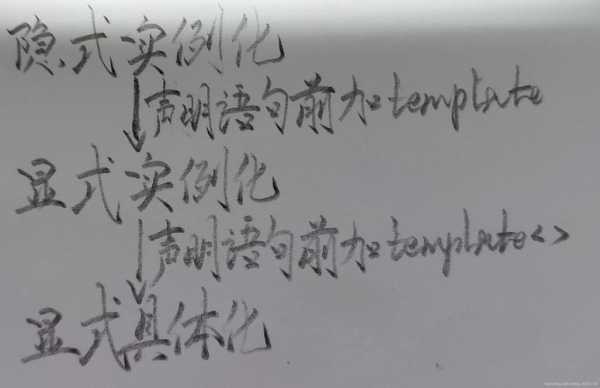 隐式实例化
↓声明语句前加template
显式实例化
↓声明语句前加template<>
显式具体化